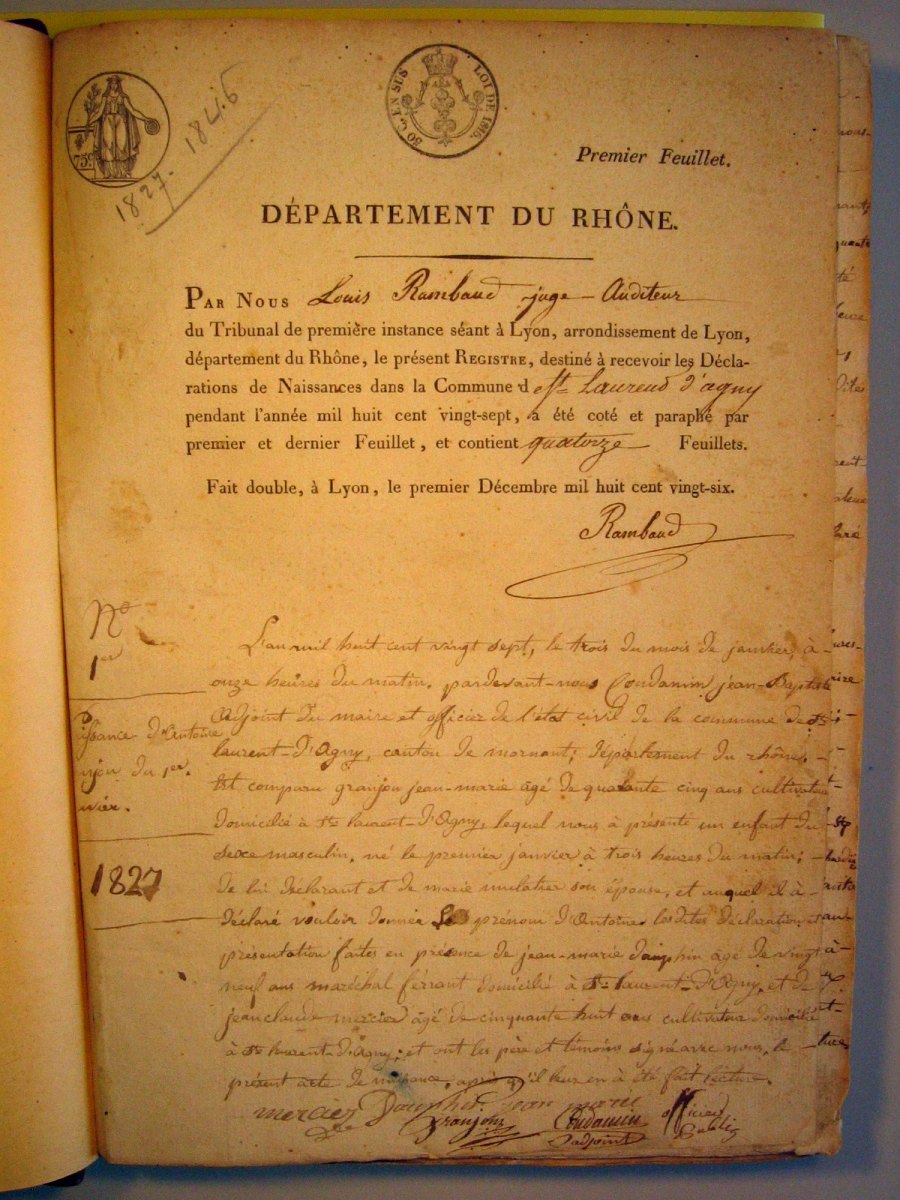 75c
1827-1846
50 c. EN SUS LOI DE 1816.
Premier Feuillet.
DÉPARTEMENT DU RHÔNE.
PAR NOUS Louis Rambaud juge-Auditeur
du Tribunal de première instance séant à Lyon, arrondissement de Lyon,
département du Rhône, le présent REGISTRE, destiné à recevoir les Décla-
rations de Naissances dans la Commune d e St Laurend d'agny
pendant l'année mil huit cent vingt-sept, a été coté et paraphé par
premier et dernier Feuillet, et contient quatorze Feuillets.
Fait double, à Lyon, le premier Décembre mil huit cent vingt-six.
Rambaud
No
1er
issance d'Antoine
njou du 1er
nvier.
1827
L'an mil huit cent vingt sept, le trois du mois de janvier, à
onze heures du matin. pardevant-nous Coudamin jean-Baptiste
adjoint du maire et officier de l'état civil de la commune de St
laurent-D'Agny, canton de mornant; département du rhône,
Est comparu granjou jean-marie agé de quarante cinq ans cultivateur
domicilié à St laurent-D'Agny, lequel nous à présenté un enfant du
sexe masculin, né le premier janvier à trois heures du matin;
de lui déclarant et de marie mulatier son épouse, et auquel il à
déclaré vouloir donner le prenom d'Antoine. les dites déclaration et
présentation faites en présence de jean-marie dauphin âgé de vingt
neuf ans maréchal ferrant domicilié à St laurent-D'Agny, et de
jean claude mercier âgé de cinquante huit ans cultivateur domicilié
à St laurent-D'agny; et ont les père et témoins signé avec nous, le
présent acte de naissance, après qu'il leur en à été fait lecture.
mercier Dauphin jean marie
granjou Coudamin officier
adjoint Public